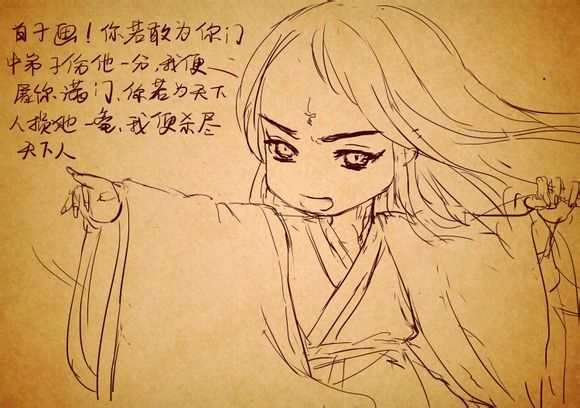 白子画！你若敢为你门
中弟子伤他一分，我便
屠你满门、你若为天下
人损她一毫、我便杀尽
天下人